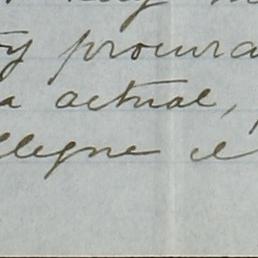 y procura
a actual,
llegne el